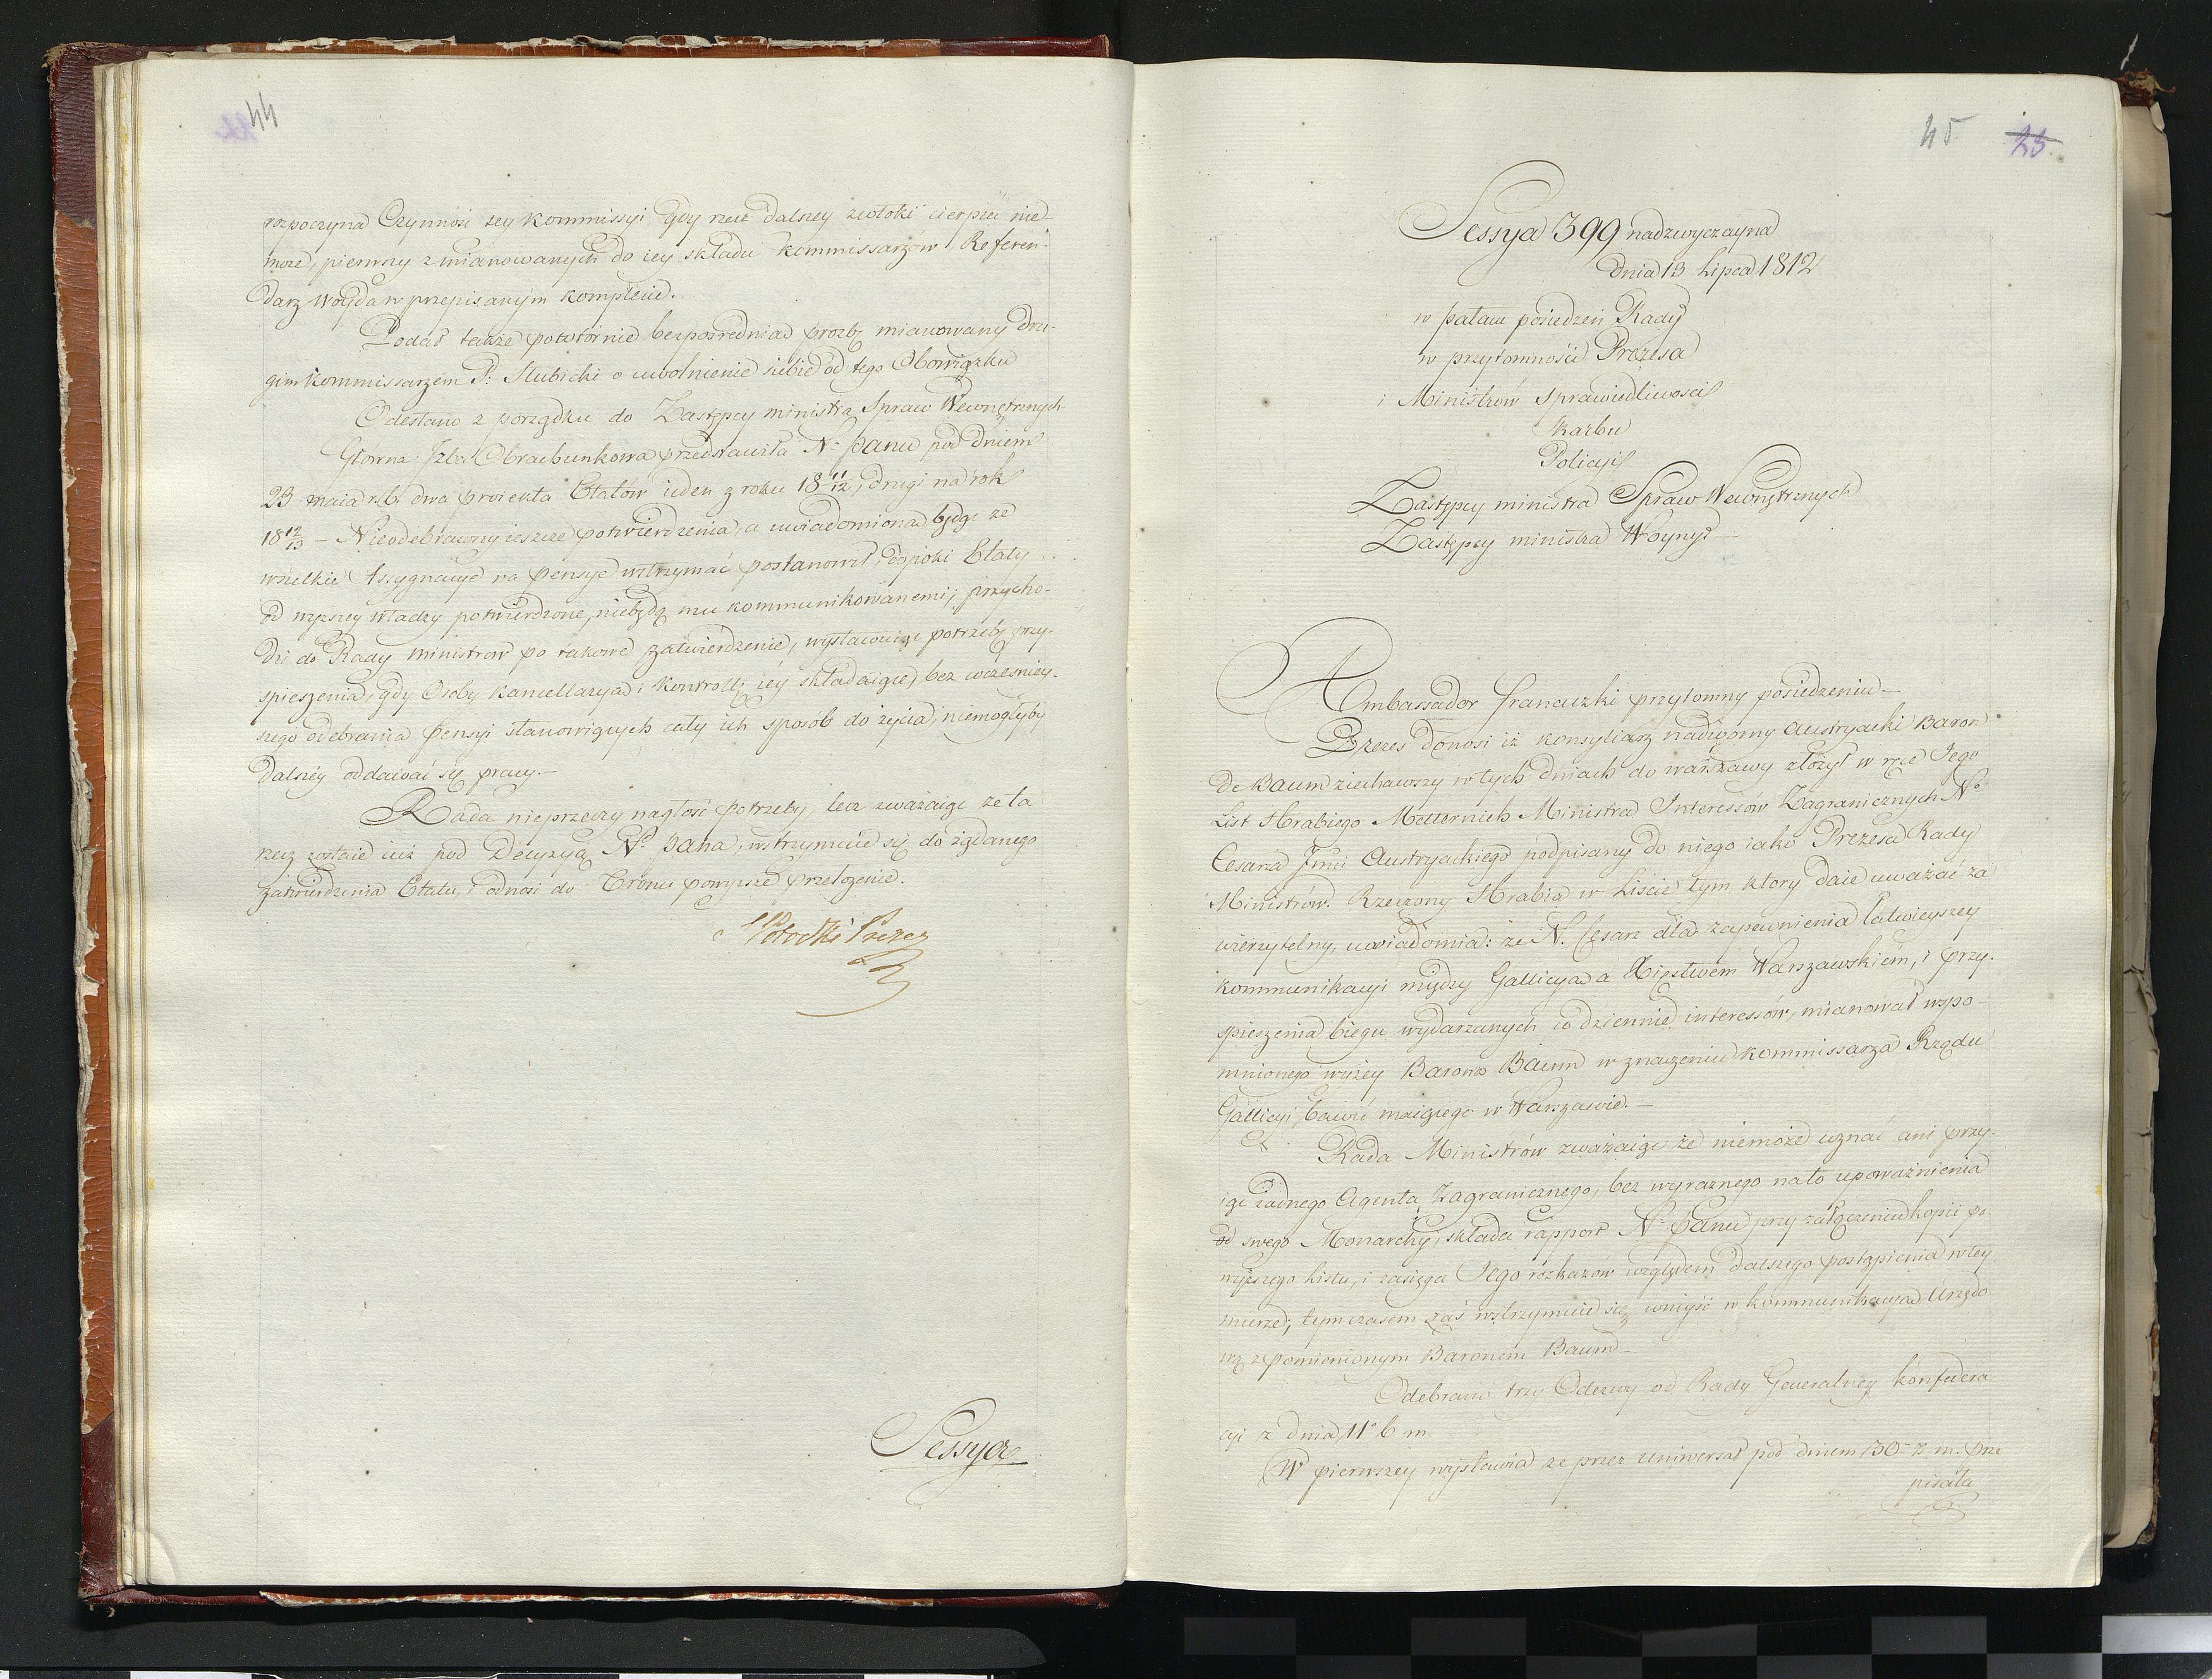 44
rozpoczyna Czynność tey Kommissyi gdy rzecz dalszey zwłoki cierpieć nie-
może, pierwszy z mianowanych do iey składu Kommissarzów Referen-
darz Woyda w przepisanym komplecie.
Podał także powtórnie bezpośrednia proźbę mianowany Dru-
gim Kommissarzem P: Słubicki o uwolnienie siebie od tego Obowiązku
Odesłano z porządku do Zastępcy ministra Spraw Wewnętrznych
Główna Izba Obrachunkowa przedstawiła N. Panu pod dniem
23 maia r.b. dwa proiekta Etatów ieden z roku 18 11/12, drugi na rok
18 12/13 – Nieodebrawszy ieszcze potwierdzenia, a uwiadomiona będąc że
wszelkie Assygnacye na pensye wstrzymać postanowił, dopóki Etaty
od wyższey władzy potwierdzone, niebędą mu kommunikowanemi; przycho-
dzi do Rady ministrow po takowe zatwierdzenie, wystawuiąc potrzebę przy-
spieszenia, gdy Osoby kancellarya i Kontrollę iey składaiące, bez wcześniey-
szego odebrania pensyi stanowiących cały ich sposób do życia, niemogłyby
dalszéy oddawać się pracy.–
Rada nieprzeczy nagłość potrzeby, lecz zważaiąc że ta
rzecz zostaie iuż pod Decyzyą No Pana, wstrzymuie się do żądanego
zatwierdzenia Etatu, i odnosi do Tronu powyższe przełożenie.
Potocki Prezes
Sessya
45 25
Sessya 399 nadzwyczayna
Dnia 13 Lipca 1812
w pałacu posiedzeń Rady
w przytomności Prezesa
i Ministrów Sprawiedliwości
Skarbu
Policyi
Zastępcy ministra Spraw Wewnętrznych
Zastępcy ministra Woyny –
Ambassador francuzki przytomny posiedzeniu –
Prezes donosi iż konsyliarz nadworny Austryacki Baron
De Baum ziechawszy w tych dniach do warszawy złożył w ręce Jego
List Hrabiego Metternich Ministra Interessów Zagranicznych No
Cesarza Jmci Austryackiego podpisany do niego iako Prezesa Rady
Ministrów. Rzeczony Hrabia w Liście tym ktory daie uważać za
wierzytelny, uwiadomia: że N. Cesarz dla zapewnienia łatwieyszey
kommunikacyi między Gallicya a Xięstwem Warszawskiém, i przy-
spieszenia biegu wydarzanych codziennie interessów, mianował wspo-
mnionego wyżey Barona Baum w znaczeniu kommissarza Rządu
Gallicyi, bawić maiącego w Warszawie. –
Rada Ministrów zważaiąc że niemoże uznać ani przy-
iąć żadnego Agenta Zagranicznego, bez wyraznego na to upoważnienia
od swego Monarchy, składa rapport No Panu przy załączeniu kopii po-
wyższego Listu, i zasięga Jego rozkazów względem dalszego postąpienia w tey
mierze; tymczasem zaś wstrzymuie się wniyść w kommunikacyą Urzędo-
wą z pomienionym Baronem Baum –
Odebrano trzy Odezwy od Rady Generalney konfedera-
cyi z dnia 11o b. m.
W pierwszey wystawia że przez uniwersał pod dniem 30 z. m. prze-
pisała